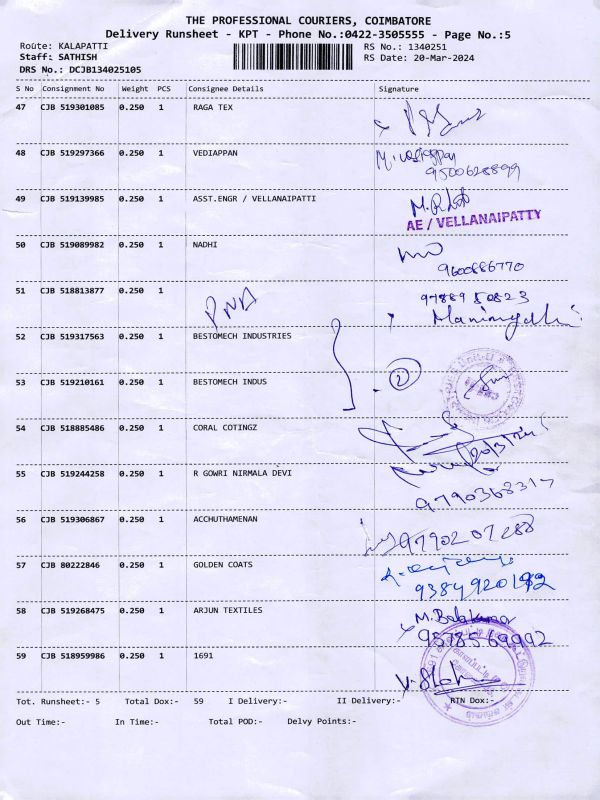 THE PROFESSIONAL COURIERS, COIMBATORE
Delivery Runsheet - KPT - Phone No.:0422-3505555 - Page No.:5
Route: KALAPATTI RS No.: 1340251
Staff: SATHISH RS Date: 20-Mar-2024
DRS No.: DCJB134025105
S No Consignment No Weight PCS Consignee Details Signature
47 CJB 519301085 0.250 1 RAGA TEX
48 CJB 519297366 0.250 1 VEDIAPPAN
9500628899
49 CJB 519139985 0.250 1 ASST.ENGR / VELLANAIPATTI
AE / VELLANAIPATTY
50 CJB 519089982 0.250 1 NADHI
9600886770
51 CJB 518813877 0.250 1 9788950823
52 CJB 519317563 0.250 1 BESTOMECH INDUSTRIES
53 CJB 519210161 0.250 1 BESTOMECH INDUS 2
54 CJB 518885486 0.250 1 CORAL COTINGZ
55 CJB 519244258 0.250 1 R GOWRI NIRMALA DEVI
9790368317
56 CJB 519306867 0.250 1 ACCHUTHAMENAN
9790207288
57 CJB 80222846 0.250 1 GOLDEN COATS
9384920192
58 CJB 519268475 0.250 1 ARJUN TEXTILES
9578569992
59 CJB 518959986 0.250 1 1691
Tot. Runsheet:- 5 Total Dox:- 59 I Delivery:- II Delivery:- RTN Dox:-
Out Time:- In Time:- Total POD:- Delvy Points:-